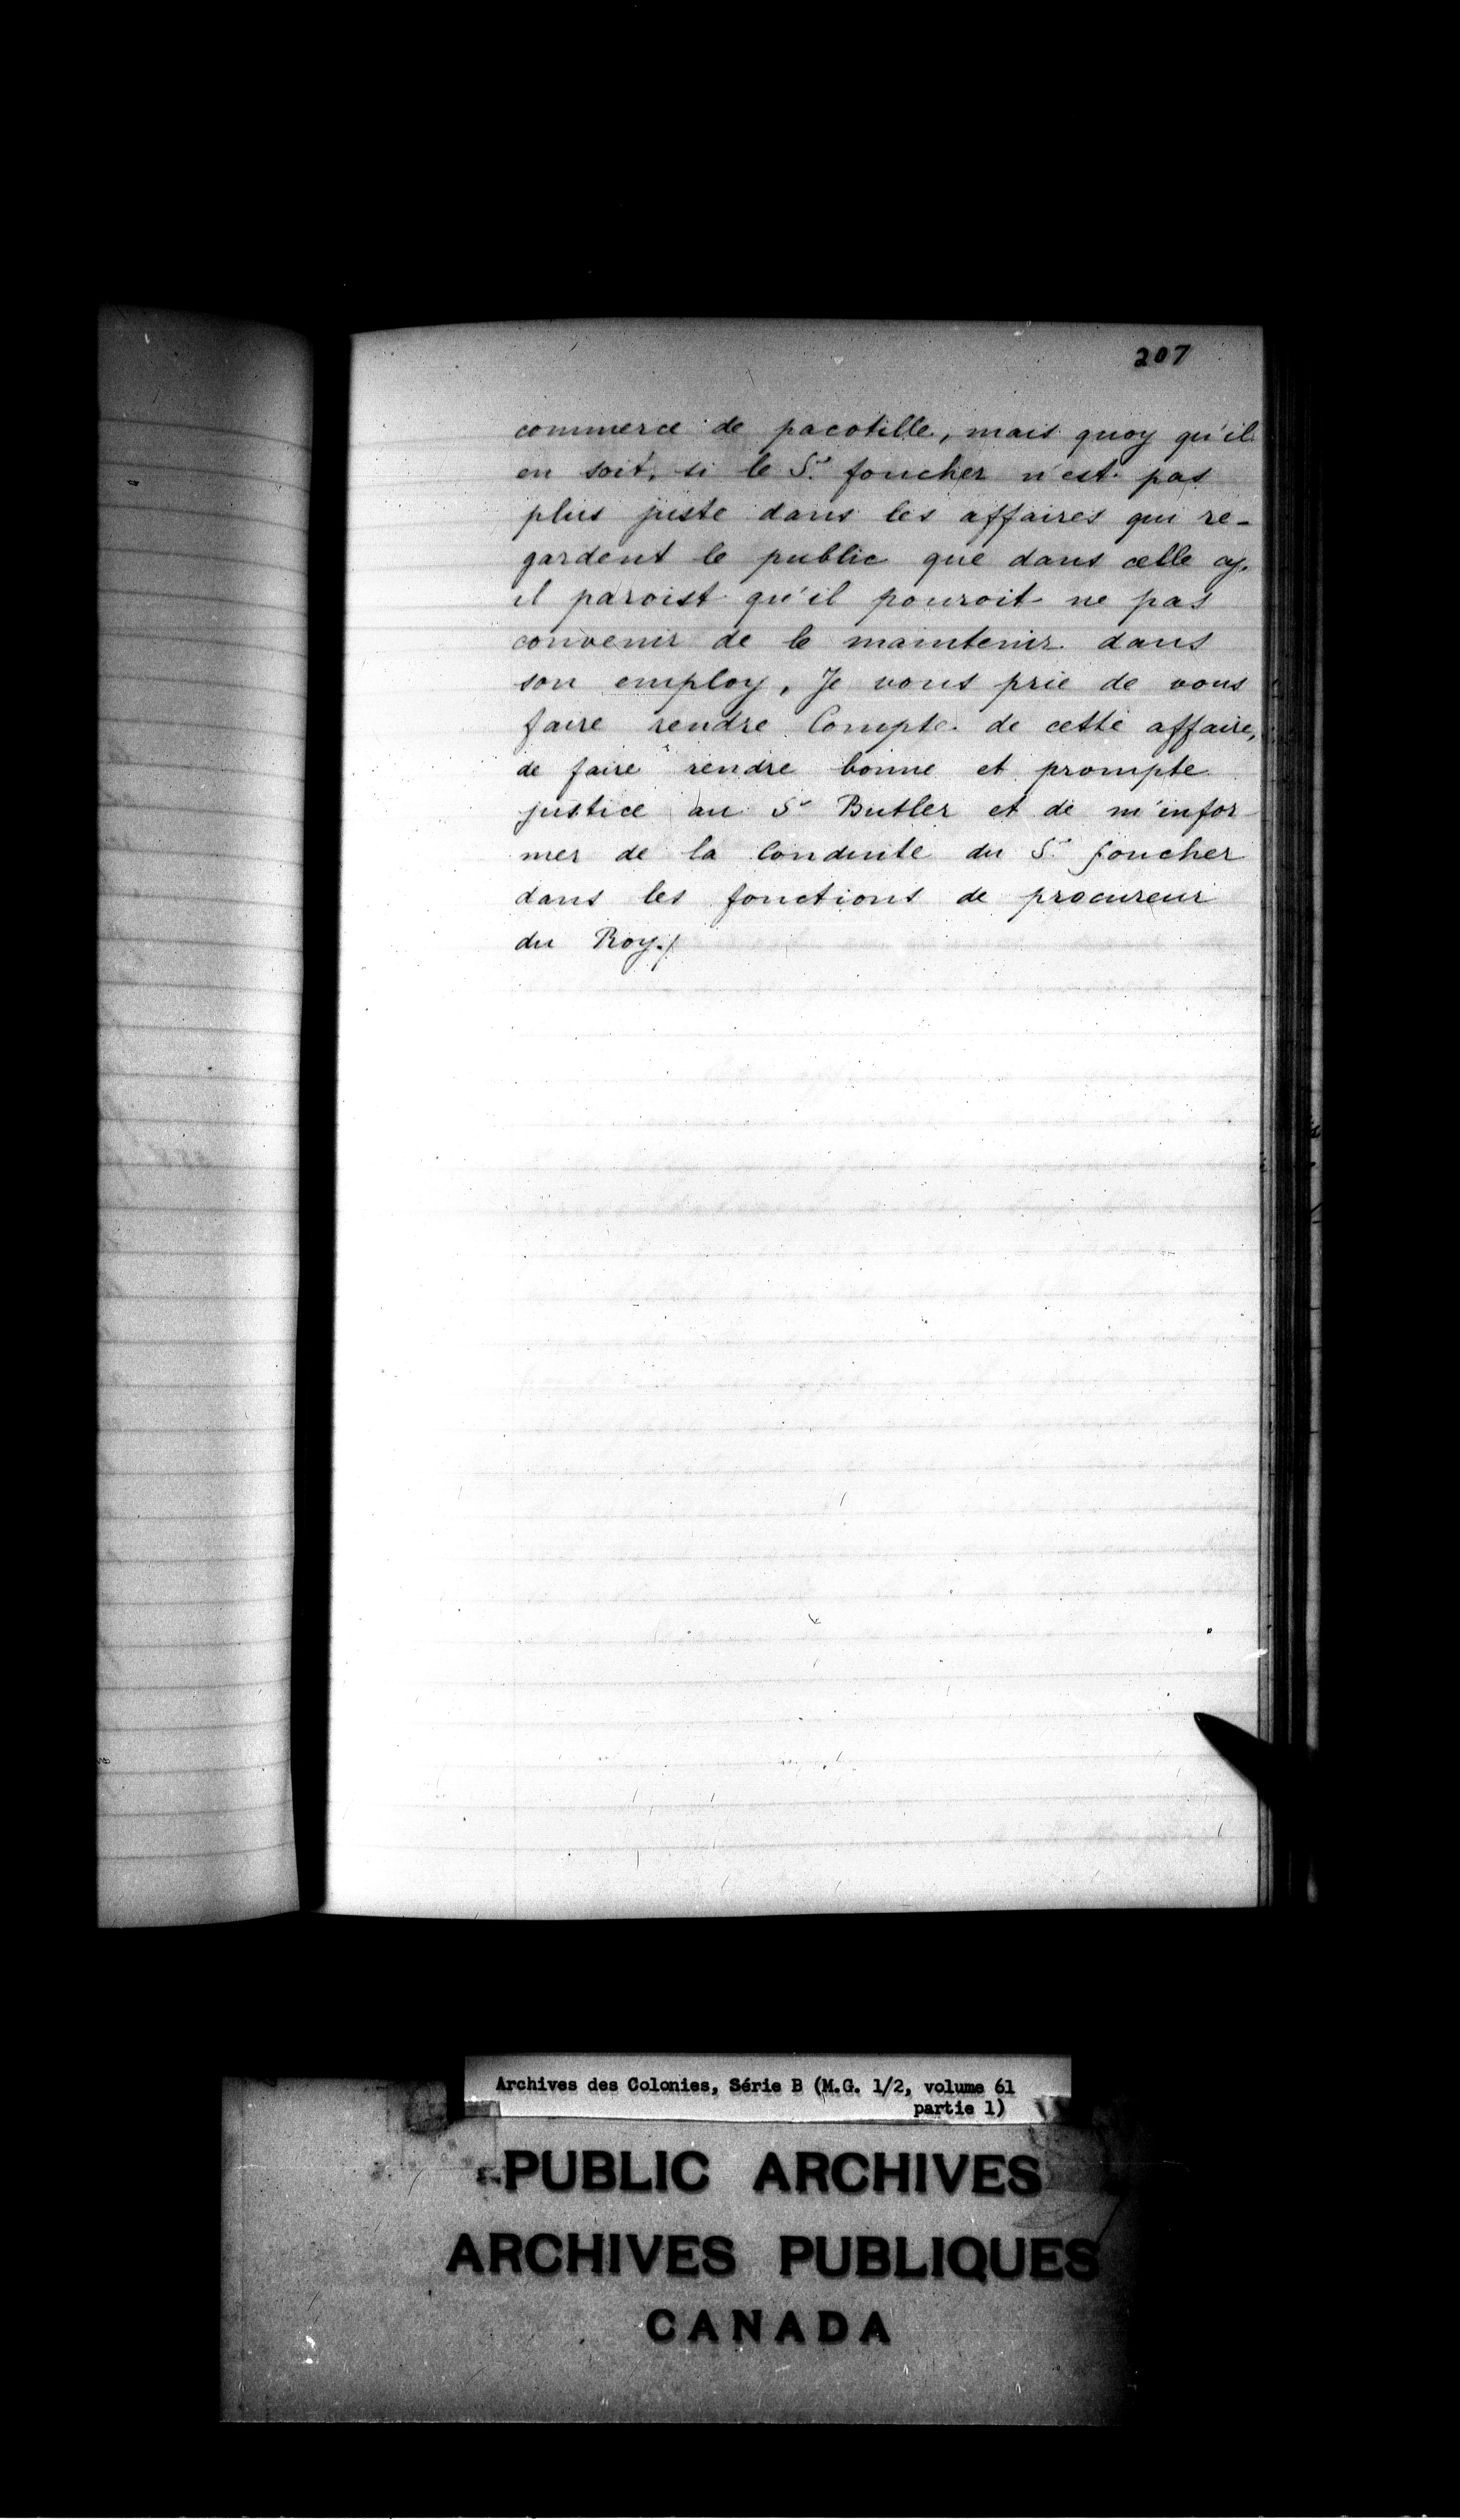 207
commerce de pacotille, mais quoy qu'il
en soit, si le Sr. foucher n'est pas
plus juste dans les affaires qui re-
gardent le public que dans celle cy.
il paroist qu'il pouroit ne pas
convenir de le maintenir dans
son employ, Je vous prie de vous
faire rendre Compte de cette affaire,
de faire rendre bonne et prompte
justice au Sr Butler et de m'infor-
mer de la Conduite du Sr. foucher
dans les fonctions de procureur
du Roy./
Archives des Colonies, Série B (M.G. 1/2, volume 61
partie 1)
PUBLIC ARCHIVES
ARCHIVES PUBLIQUES
CANADA